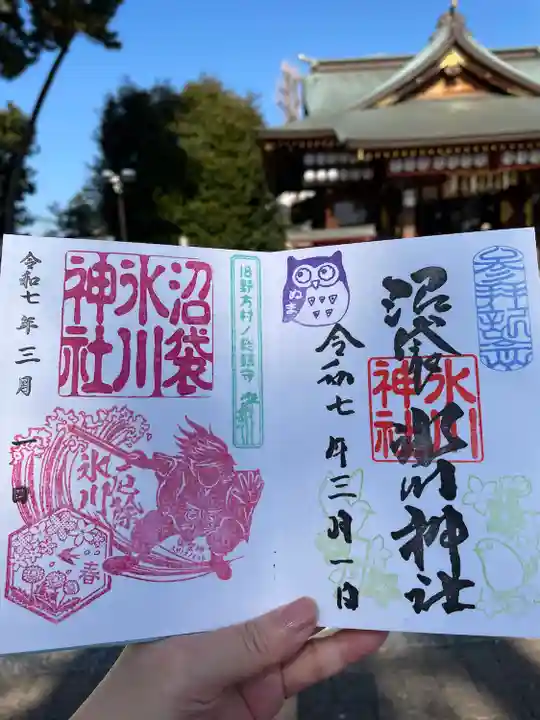 参拝記念
沼袋氷川神社
氷川
神社
令和七年三月一日
ぬま
旧野方村ノ総鎮守
沼袋
氷川
神社
令和七年三月一日
厄除
氷川
春